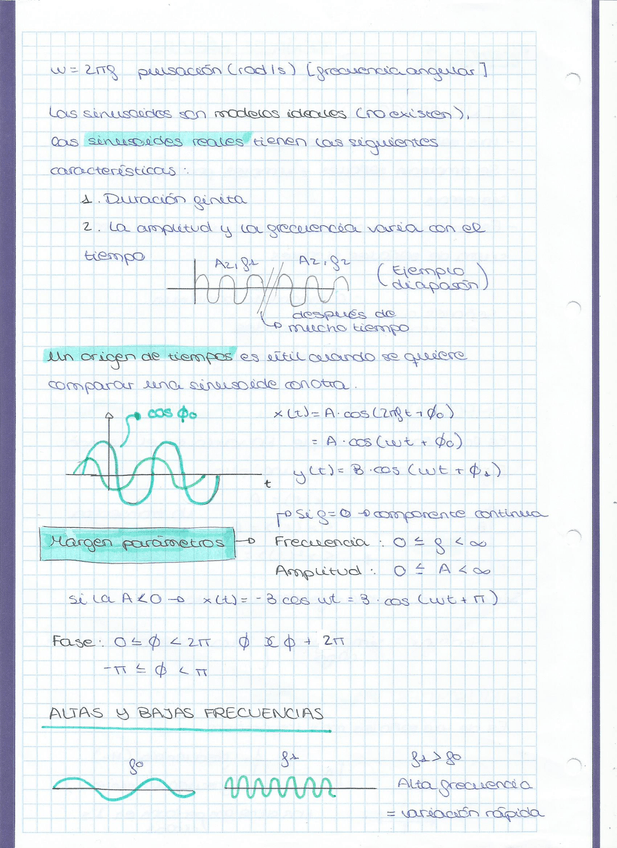 ω = 2πf pulsación (rad/s) [frecuencia angular]
Las sinusoides son modelos ideales (no existen),
las sinusoides reales tienen las siguientes
características:
1. Duración finita
2. La amplitud y la frecuencia varia con el
tiempo
A2, f1 A2, f2
(Ejemplo
diapasón)
después de
mucho tiempo
Un origen de tiempos es útil cuando se quiere
comparar una sinusoide con otra.
cos ϕ0
x(t) = A · cos(2πft + ϕ0)
= A · cos(ωt + ϕ0)
y(t) = B · cos(ωt + ϕ1)
t
Si f = 0 → componente continua
Margen parámetros → Frecuencia: 0 ≤ f < ∞
Amplitud: 0 ≤ A < ∞
si la A<0 → x(t) = -3 cos ωt = 3 · cos(ωt + π)
Fase: 0 ≤ ϕ < 2π ϕ ϕ + 2π
-π ≤ ϕ < π
ALTAS Y BAJAS FRECUENCIAS
f0 f1 f1 > f0
Alta frecuencia
= variación rápida